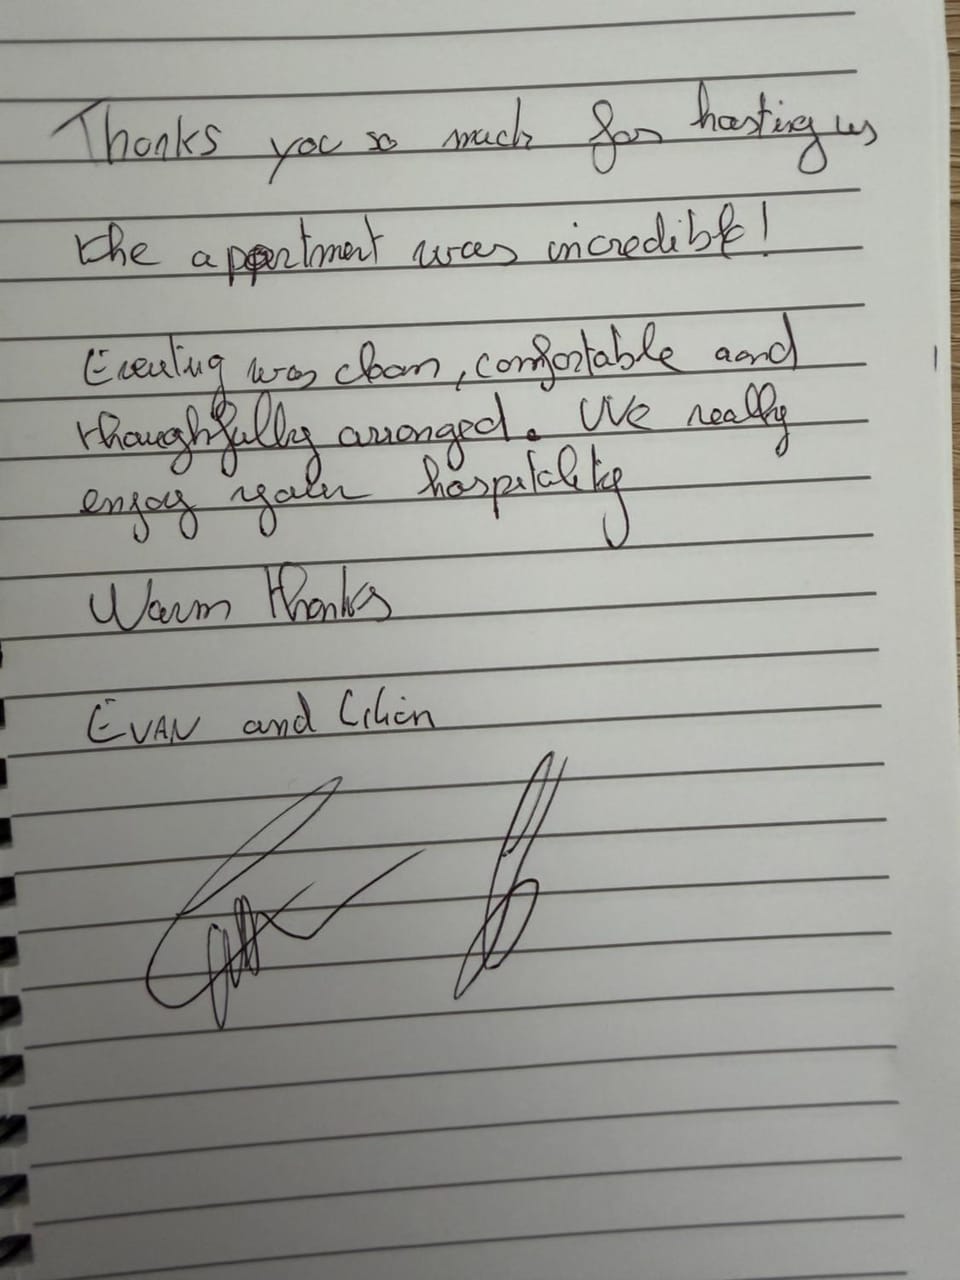 Thanks you so much for hosting us
the apartment was incredible!
was clean, comfortable aand
thoughfully arranged. We really
enjoy your hospitality
Warm thanks
EVAN and Lilian